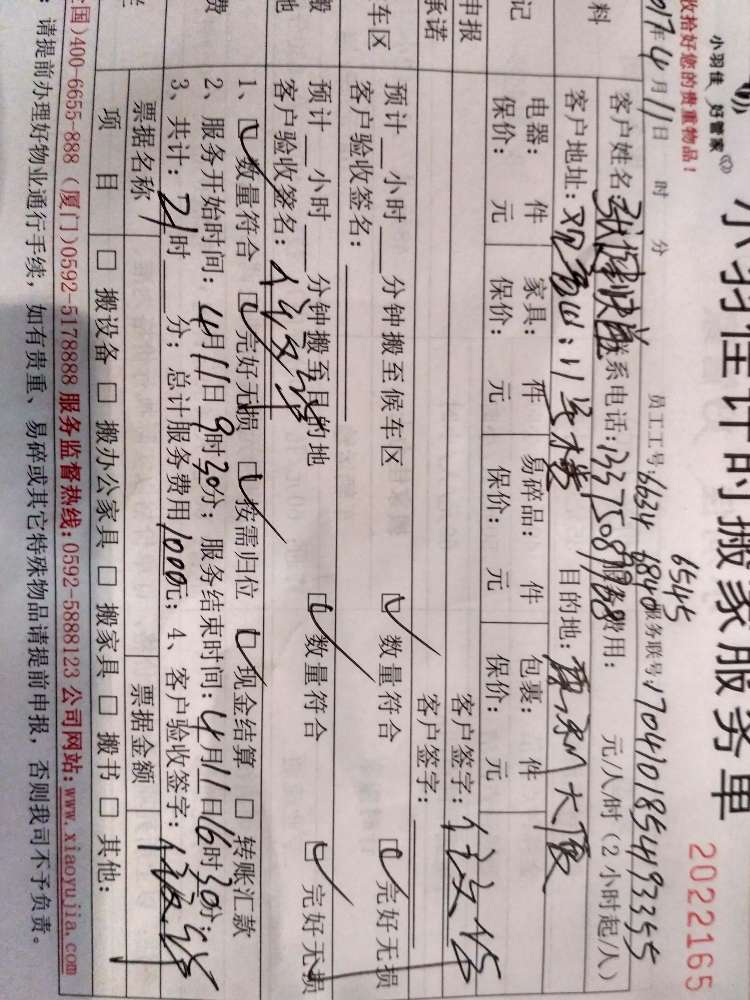 小羽佳计时搬家服务单
小羽佳 好管家
2022165
收拾好您的贵重物品!
6545
员工工号:6634 6840 服务联号:170410185493355
017年4月11日 时 分
料
客户姓名: 联系电话:13375087788 服务费用: 元/人/时(2小时起/人)
客户地址: 目的地: 大厦
记
电器: 件 家具: 件 易碎品: 件 包裹: 件
保价: 元 保价: 元 保价: 元 保价: 元
申报
客户签字:
承诺
客户签字:
车区
预计__小时___分钟搬至候车区 数量符合 完好无损
客户验收签名:
搬
地
预计__小时___分钟搬至目的地 数量符合 完好无损
客户验收签名:
费
1、数量符合 完好无损 按需归位 现金结算 转账汇款
2、服务开始时间:4月11日9时30分;服务结束时间:4月11日16时30分;
3、共计:21时___分;总计服务费用1000元;4、客户验收签字:
票据名称 票据金额
项 目 搬设备 搬办公家具 搬家具 搬书 其他:
国)400-6655-888 (厦门)0592-5178888 服务监督热线:0592-5888123 公司网站:www.xiaoyujia.com
:请提前办理好物业通行手续,如有贵重、易碎或其它特殊物品请提前申报,否则我司不予负责。